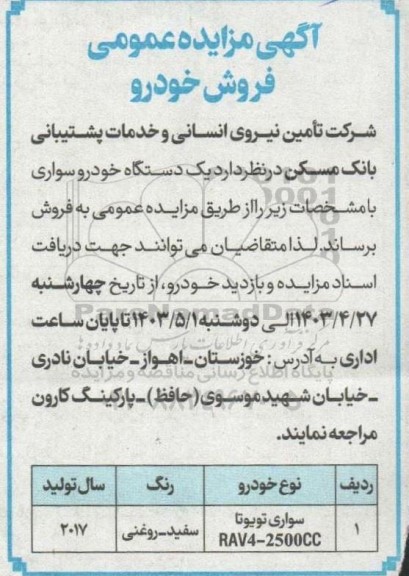 آگهی مزایده عمومی
فروش خودرو
شرکت تأمین نیروی انسانی و خدمات پشتیبانی
بانک مسکن درنظر دارد یک دستگاه خودرو سواری
بامشخصات زیر را از طریق مزایده عمومی به فروش
برساند. لذا متقاضیان می توانند جهت دریافت
اسناد مزایده و بازدید خودرو، از تاریخ چهارشنبه
۱۴۰۳/۴/۲۷ الی دوشنبه ۱۴۰۳/۵/۱ تا پایان ساعت
اداری به آدرس: خوزستان ـ اهواز ـ خیابان نادری
ـ خیابان شهید موسوی (حافظ) ـ پارکینگ کارون
مراجعه نمایند.
ردیف نوع خودرو رنگ سال تولید
۱ سواری تویوتا RAV4-2500CC سفید ـ روغنی ۲۰۱۷
ParsNamadData
پایگاه اطلاع رسانی مناقصه و مزایده